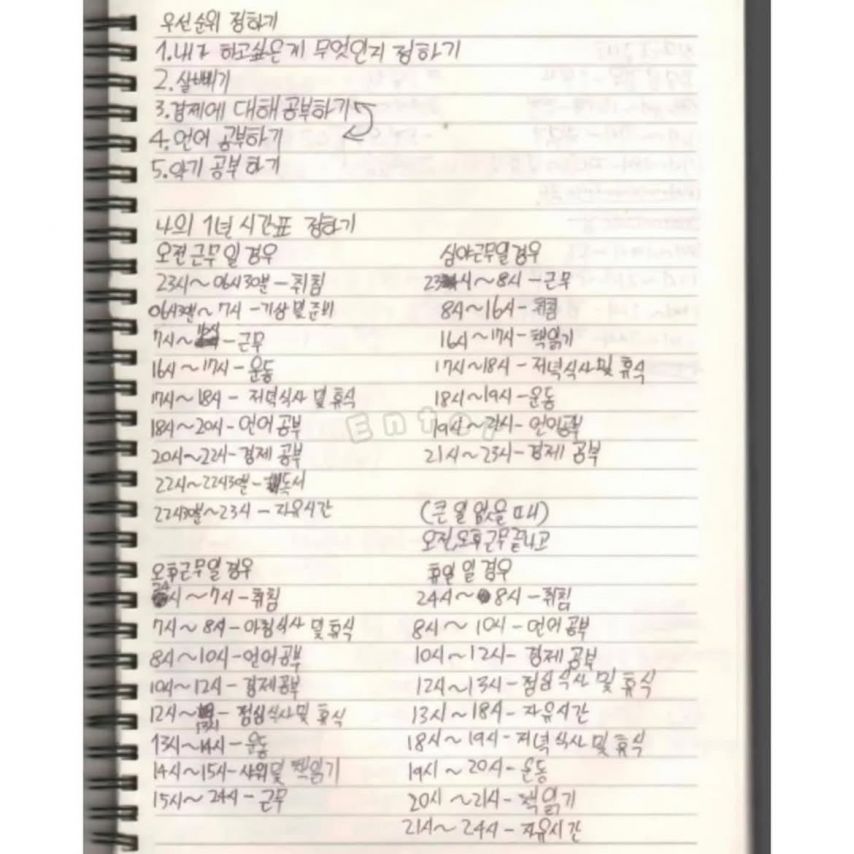 우선순위 정하기
1. 내가 하고싶은게 무엇인지 정하기
2. 살빼기
3. 경제에 대해 공부하기
4. 언어 공부하기
5. 악기 공부하기
나의 1년 시간표 정하기
오전근무일경우
23시~06시30분-취침
06시30분~7시-기상 및 준비
7시~ -근무
16시~17시-운동
17시~18시-저녁식사 및 휴식
18시~20시-언어공부
20시~22시-경제공부
22시~22시30분-독서
22시30분~23시-자유시간
심야근무일경우
23시~8시-근무
8시~16시-취침
16시~17시-책읽기
17시~18시-저녁식사 및 휴식
18시~19시-운동
19시~21시-언어공부
21시~23시-경제 공부
Enter
오후근무일경우
24시~7시-취침
7시~8시-아침식사 및 휴식
8시~10시-언어공부
10시~12시-경제공부
12시~13시-점심식사 및 휴식
13시~14시-운동
14시~15시-샤워 및 책읽기
15시~24시-근무
(큰 일 없을 때)
오전,오후근무끝나고
휴일 일 경우
24시~8시-취침
8시~10시-언어공부
10시~12시-경제공부
12시~13시-점심식사 및 휴식
13시~18시-자유시간
18시~19시-저녁식사 및 휴식
19시~20시-운동
20시~21시-책읽기
21시~24시-자유시간